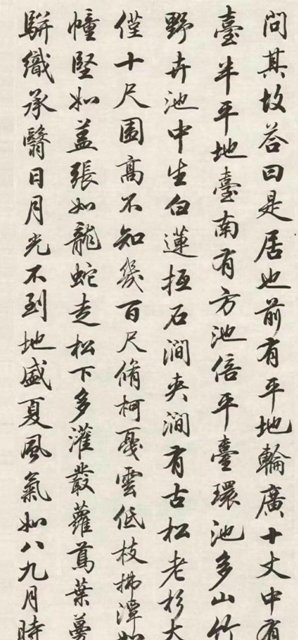 問其故答曰是居也前有平地輪廣十丈中有
臺半平地臺南有方池倍平臺環池多山竹
野卉池中生白蓮抵石澗夾澗有古松老杉大
僅十尺圍高不知幾百尺脩柯戛雲低枝拂潭如
幢堅如蓋張如龍蛇走松下多灌叢蘿蔦葉蔓
駢織承翳日月光不到地盛夏風氣如八九月時